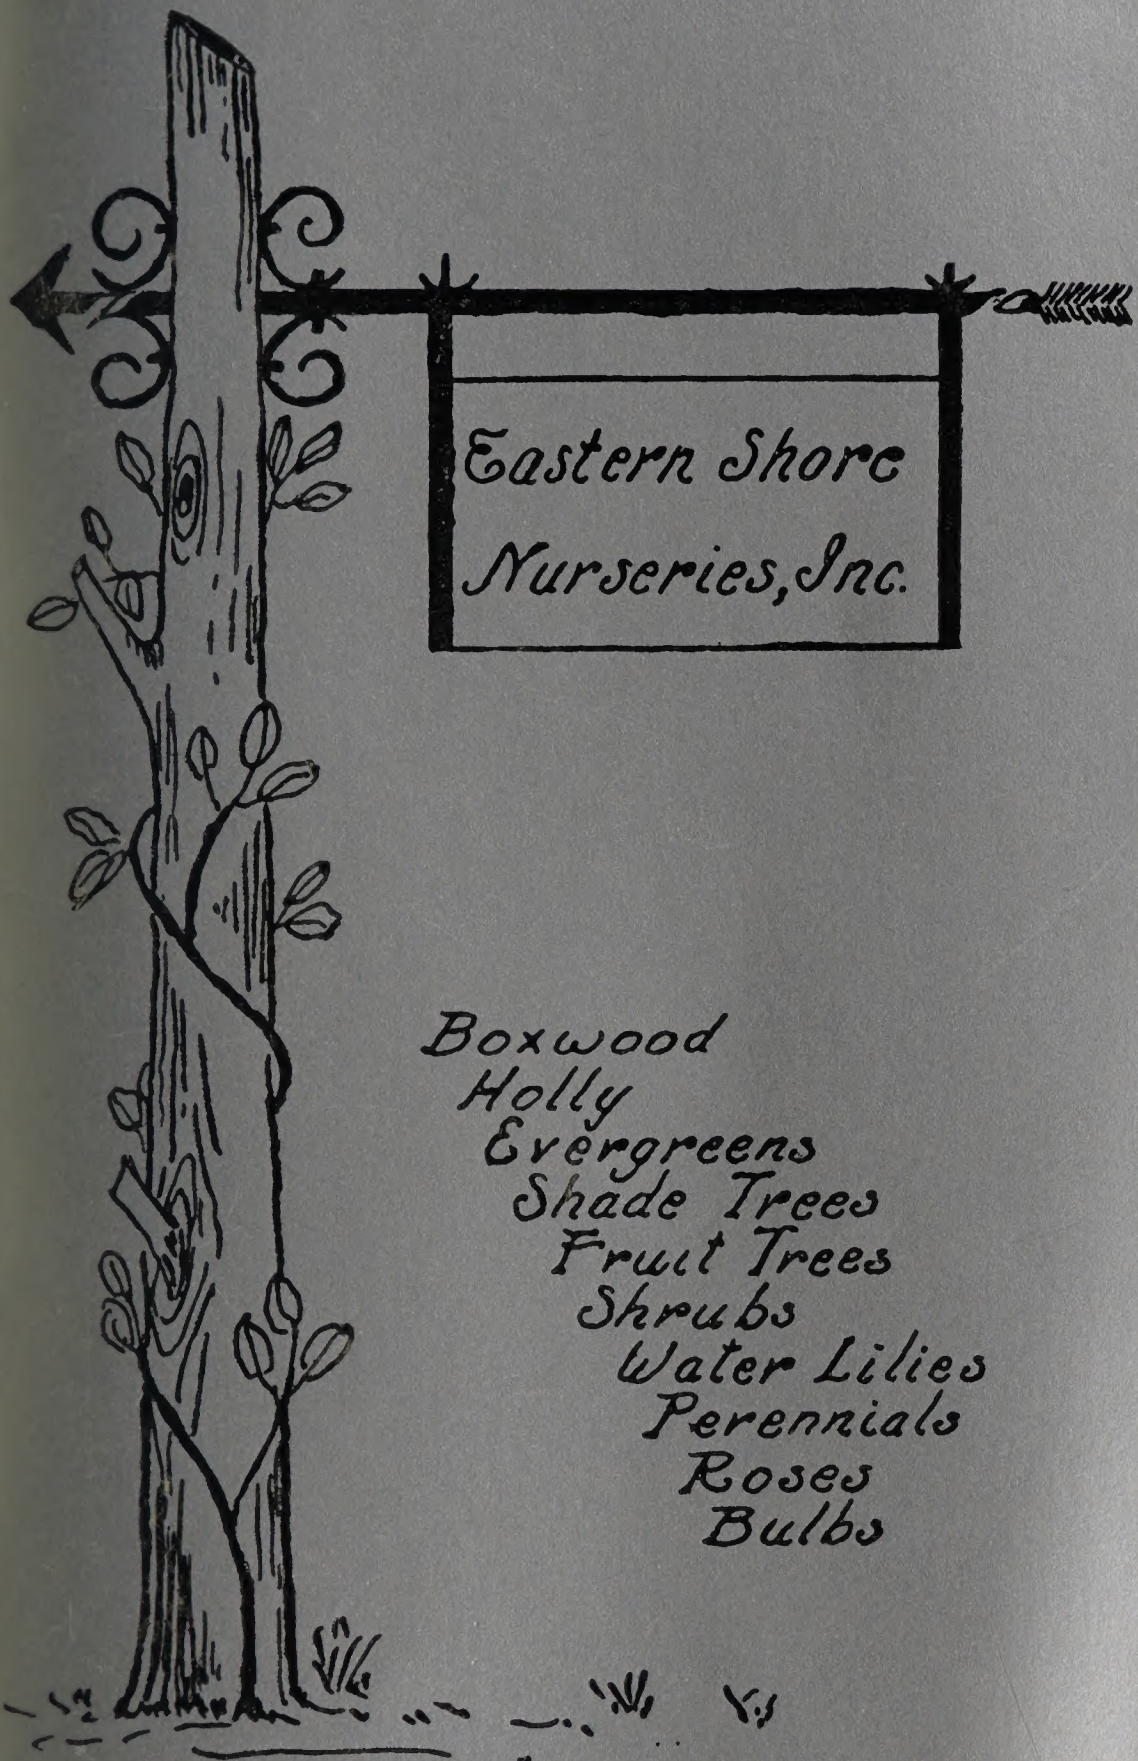 Eastern Shore
Nurseries, Inc.
Boxwood
Holly
Evergreens
Shade Trees
Fruit Trees
Shrubs
Water Lilies
Perennials
Roses
Bulbs